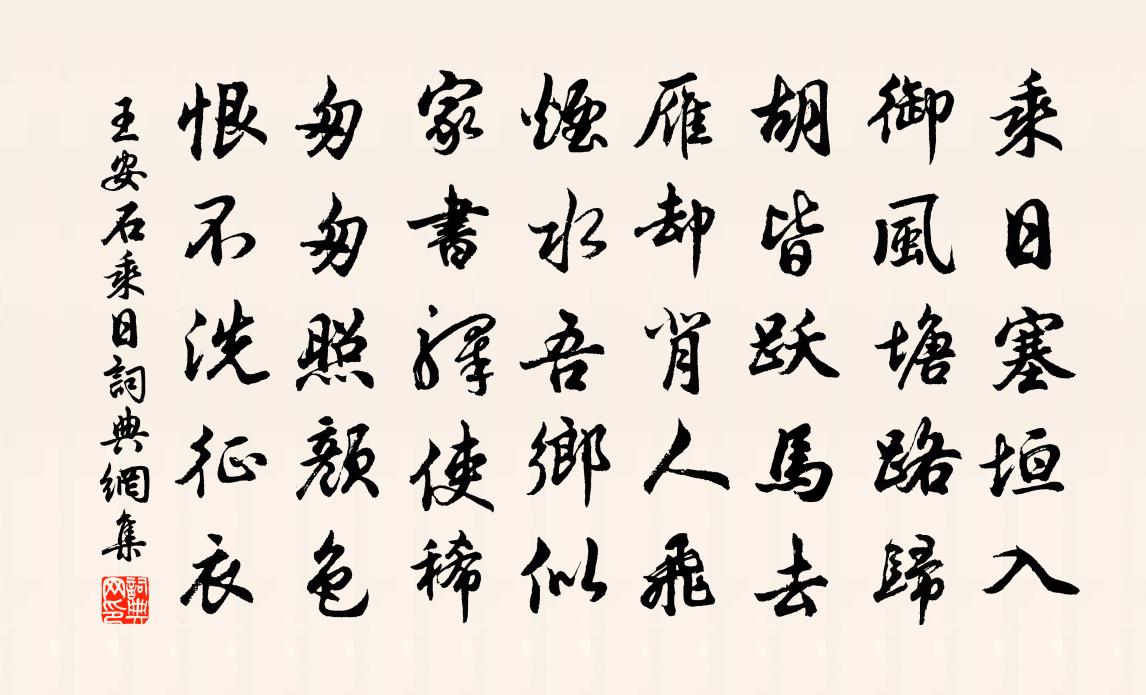 乘日塞垣入
御風塘路歸
胡皆跃馬去
雁却背人飛
煙水吾鄉似
家書驛使稀
匆匆照顔色
恨不洗征衣
王安石乘日詞典網集
詞典网印